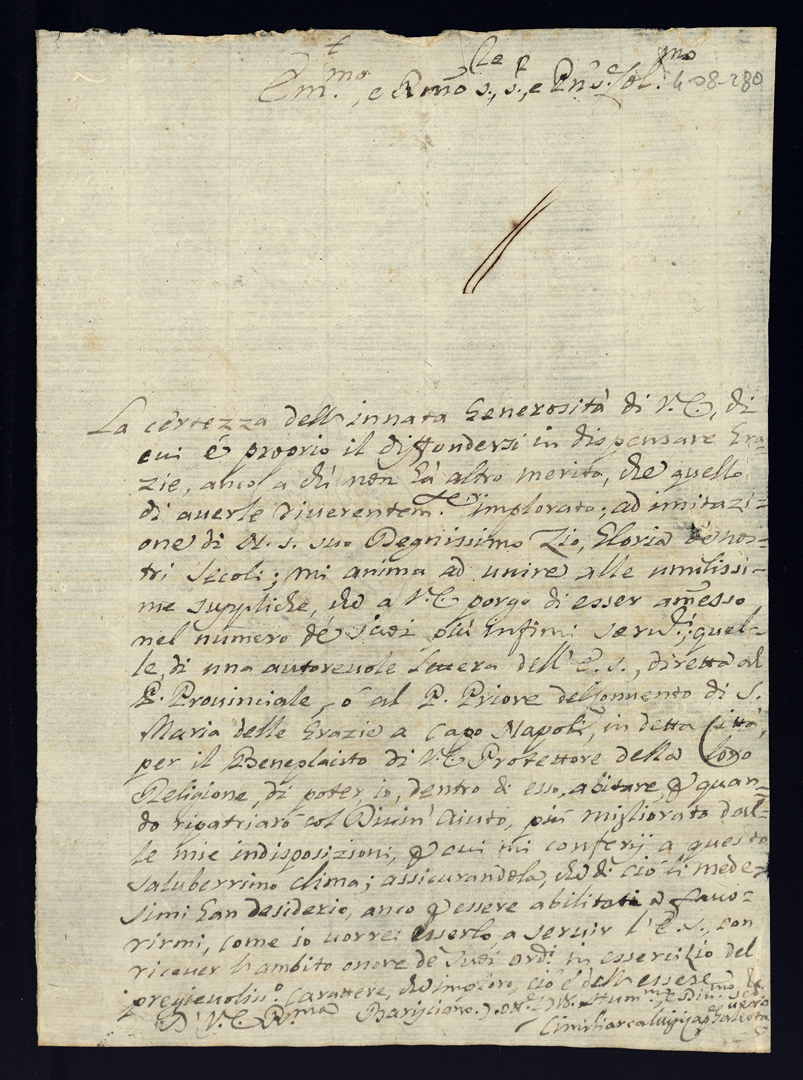 Em.mo, e Rmõ S.r, S.r, e Pn̄e Col.mo
4-08-280
La certezza dell'innata Generosità di V.E., di
cui é proprio il diffondersi in dispensare Gra-
zie, anco a chi non hà altro merito, che quello
di auerle riuerentem.te implorato; ad imitazi-
one di N.S. suo Degnissimo Zio, Gloria de nos-
tri Secoli; mi anima ad unire alle umilissi-
me suppliche, che a V.E. porgo di esser am̃esso
nel numero de suoi più infimi seru.ri; quel-
le, di una autoreuole lettera dell'E.S., diretta al
P. Prouinciale, ó al P. Priore del Conuento di S.
Maria delle Grazie a Capo Napoli, in detta Città,
per il Beneplacito di V.E. Protettore della loro
Religione, di poter, io, dentro di esso, abitare, quan-
do ripatriaró col Diuin' aiuto, più migliorato dal-
le mie indisposizioni, cui mi conferij a questo
saluberrimo clima; assicurandola, che di ció li mede-
simi han desiderio, anco essere abilitati a fauo-
rirmi, come io uorrei esserlo, a seruir l'E.S., con
riceuer l'ambito onore de suoi ord.i in essercizio del
pregieuoliss.o carattere, che imploro, ció é dell'essere
D' V.E. R.ma